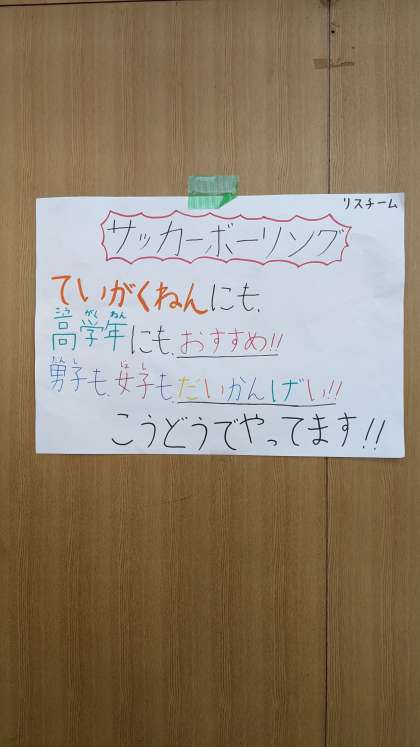 リスチーム
サッカーボーリング
ていがくねんにも、
こう がく ねん
高学年にも、おすすめ!!
だん し じょ し
男子も、女子も、だいかんげい!!
こうどうでやってます!!